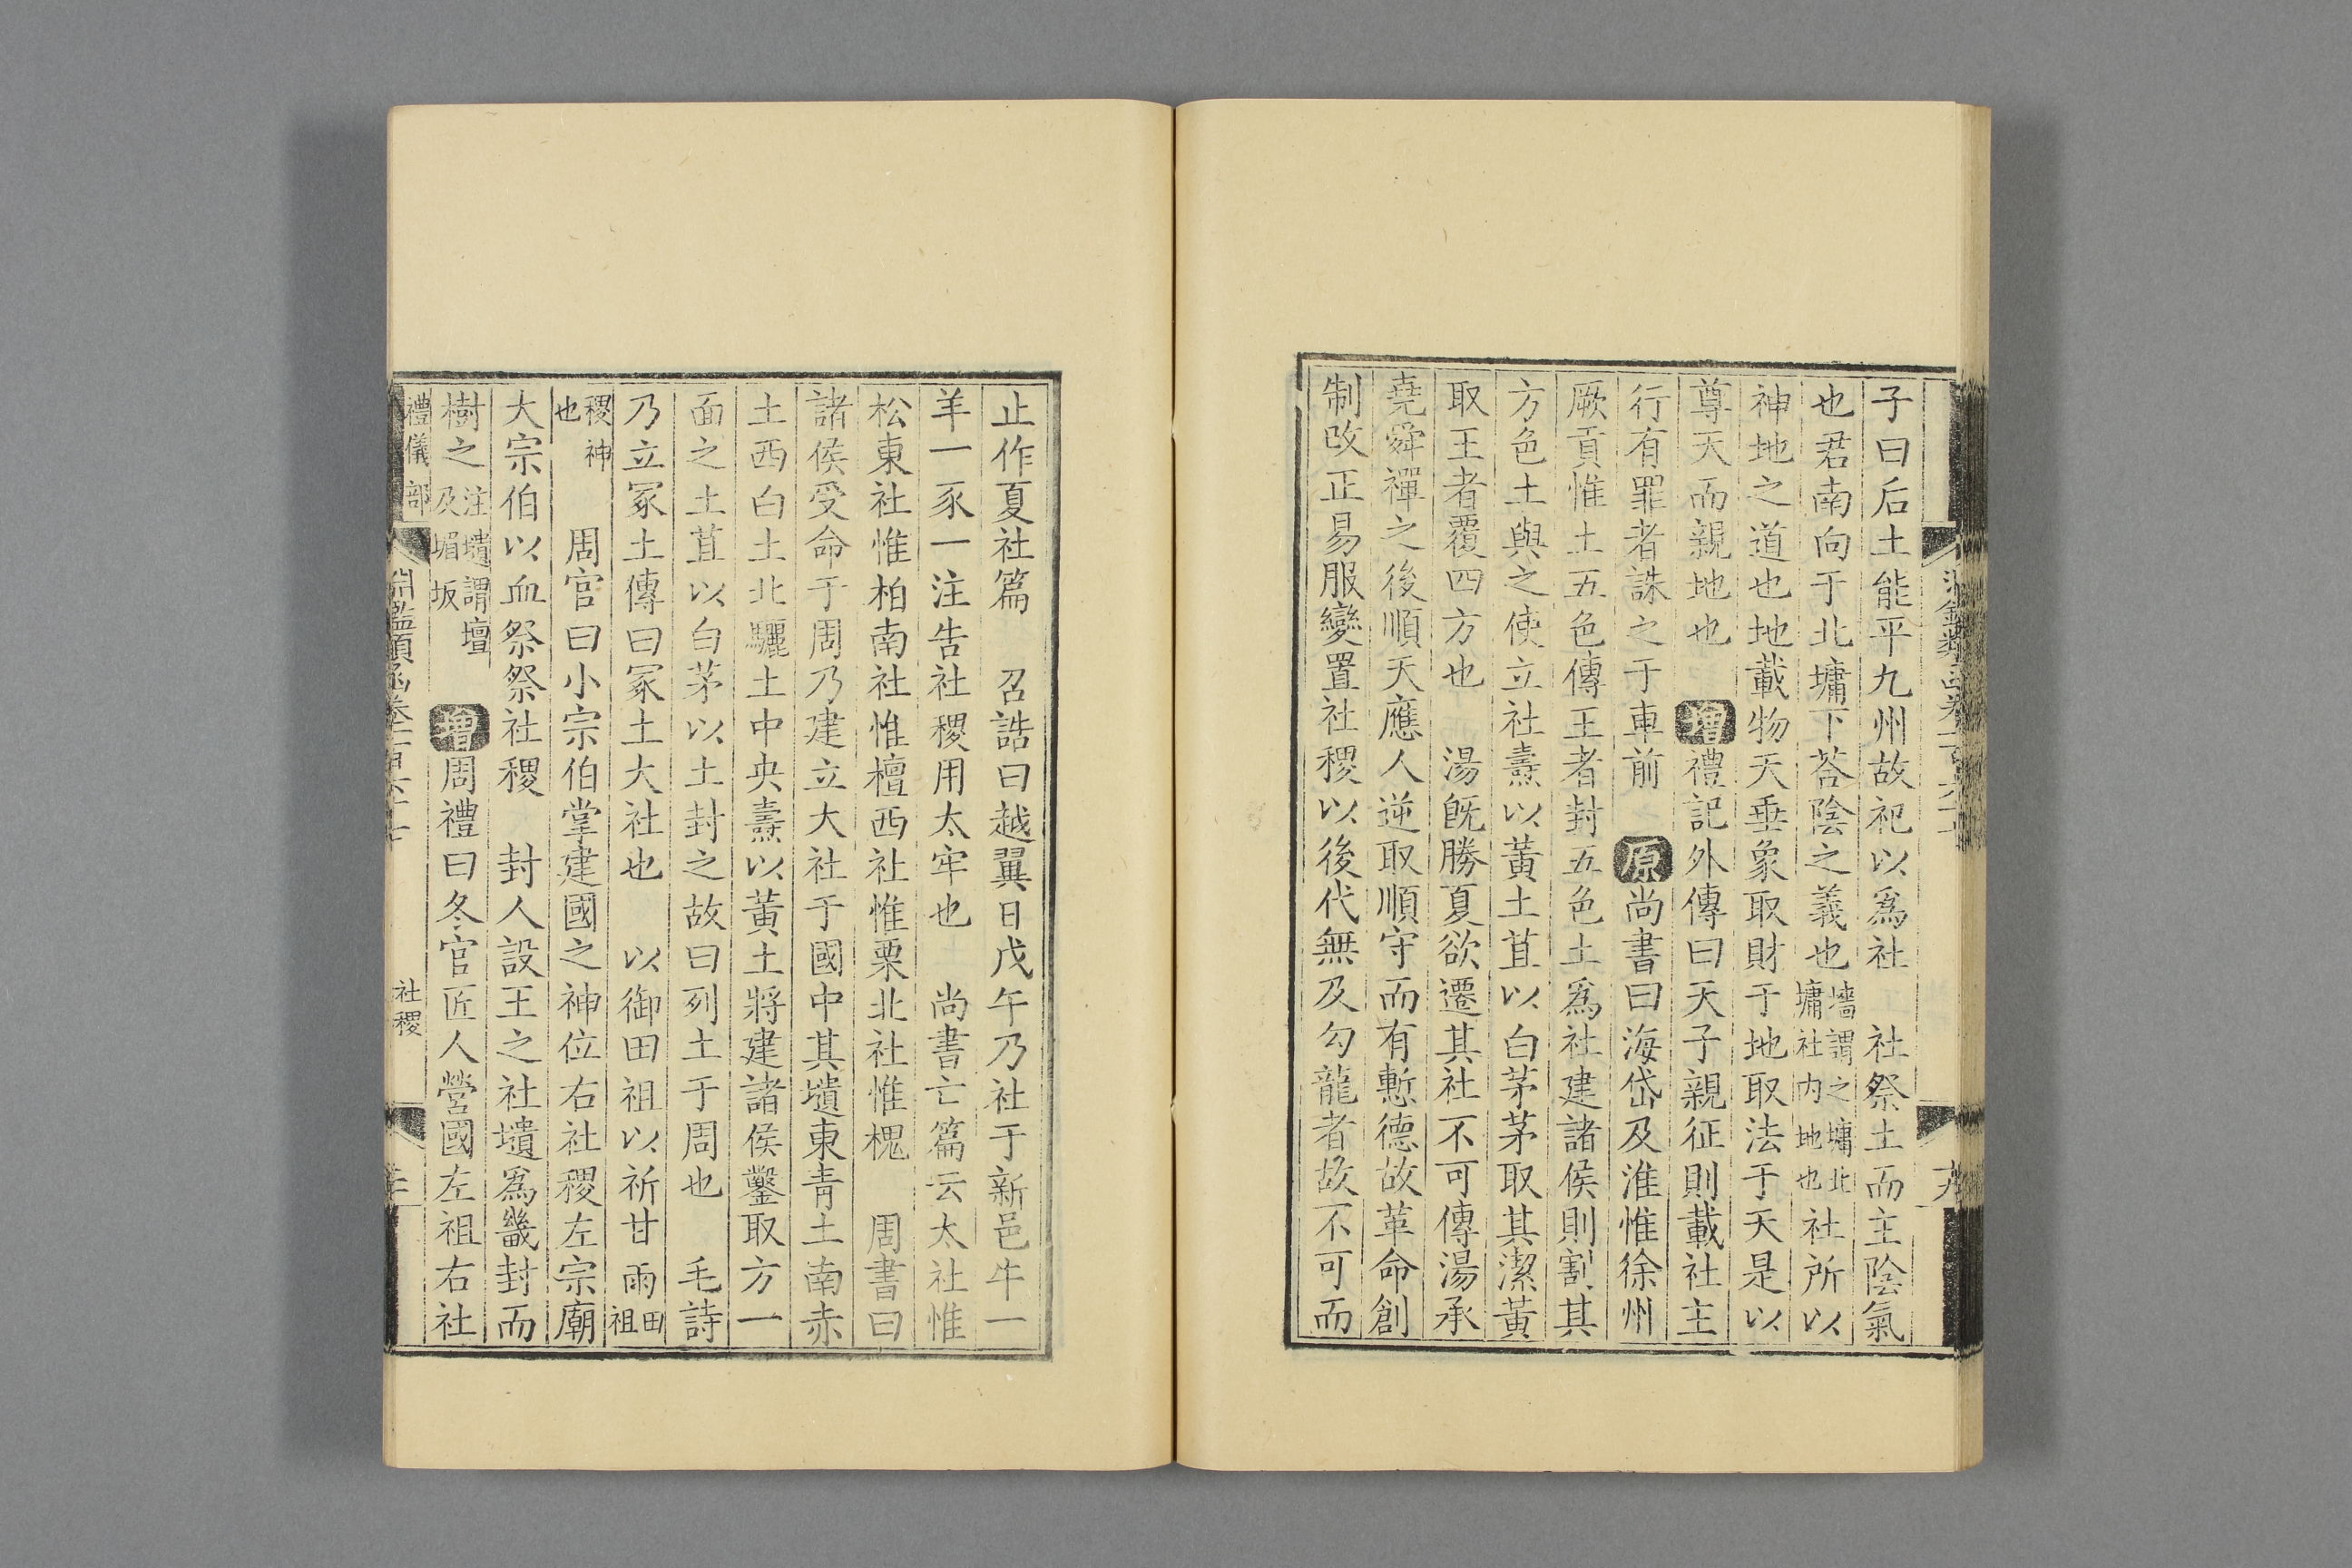 子曰后土能平九州故祀以爲社　社祭土而主陰氣
也君南向于北墉下荅陰之義也墻謂之墉北墉社内地也社所以
神地之道也地載物天垂象取財于地取法于天是以
尊天而親地也　增禮記外傳曰天子親征則載社主
行有罪者誅之于車前　原尚書曰海岱及淮惟徐州
厥貢惟土五色傳王者封五色土爲社建諸侯則割其
方色土與之使立社燾以黃土苴以白茅茅取其潔黃
取王者覆四方也　湯旣勝夏欲遷其社不可傳湯承
堯舜禪之後順天應人逆取順守而有慙德故革命創
制改正易服變置社稷以後代無及勾龍者故不可而
止作夏社篇　召誥曰越翼日戊午乃社于新邑牛一
羊一豕一注告社稷用太牢也　尚書亡篇云太社惟
松東社惟柏南社惟檀西社惟栗北社惟槐　周書曰
諸侯受命于周乃建立大社于國中其壝東青土南赤
土西白土北驪土中央燾以黃土將建諸侯鑿取方一
面之土苴以白茅以土封之故曰列土于周也　毛詩
乃立冢土傳曰冢土大社也　以御田祖以祈甘雨田祖
稷神也　周官曰小宗伯掌建國之神位右社稷左宗廟
大宗伯以血祭祭社稷　封人設王之社壝爲畿封而
樹之注壝謂壇及堳坂　增周禮曰冬官匠人營國左祖右社
禮儀部　淵鑑類函卷一百六十七　社稷